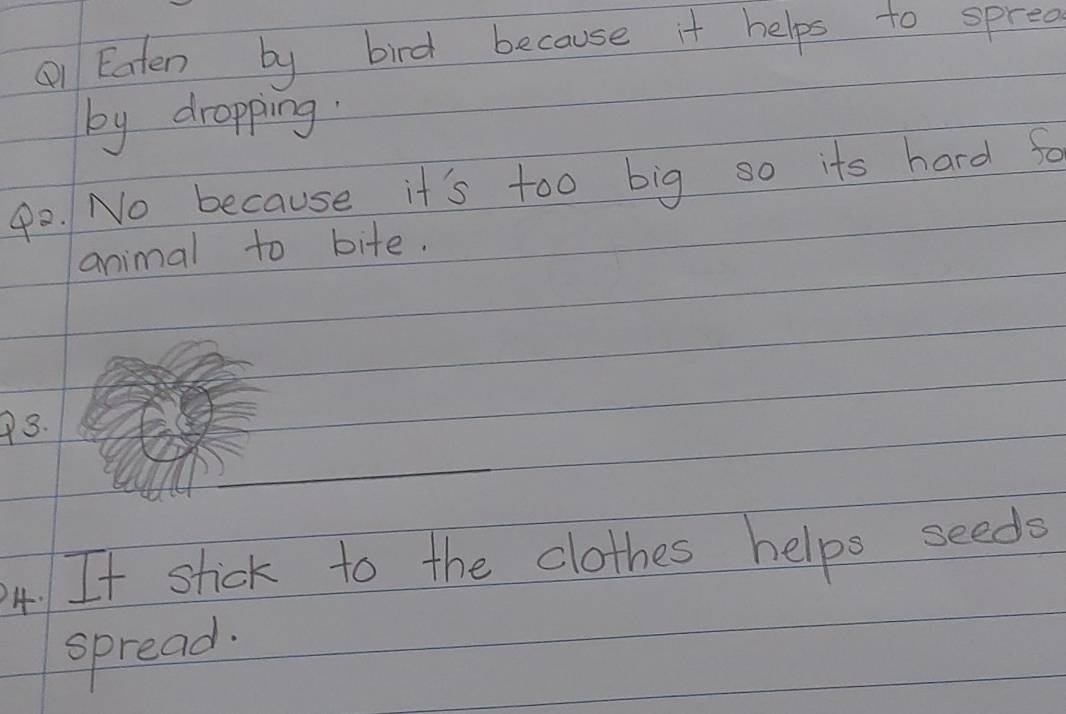 Q1 Eaten by bird because it helps to sprea
by dropping.
Q2. No because it's too big so its hard fo
animal to bite.
Q3.
Q4. It stick to the clothes helps seeds
spread.